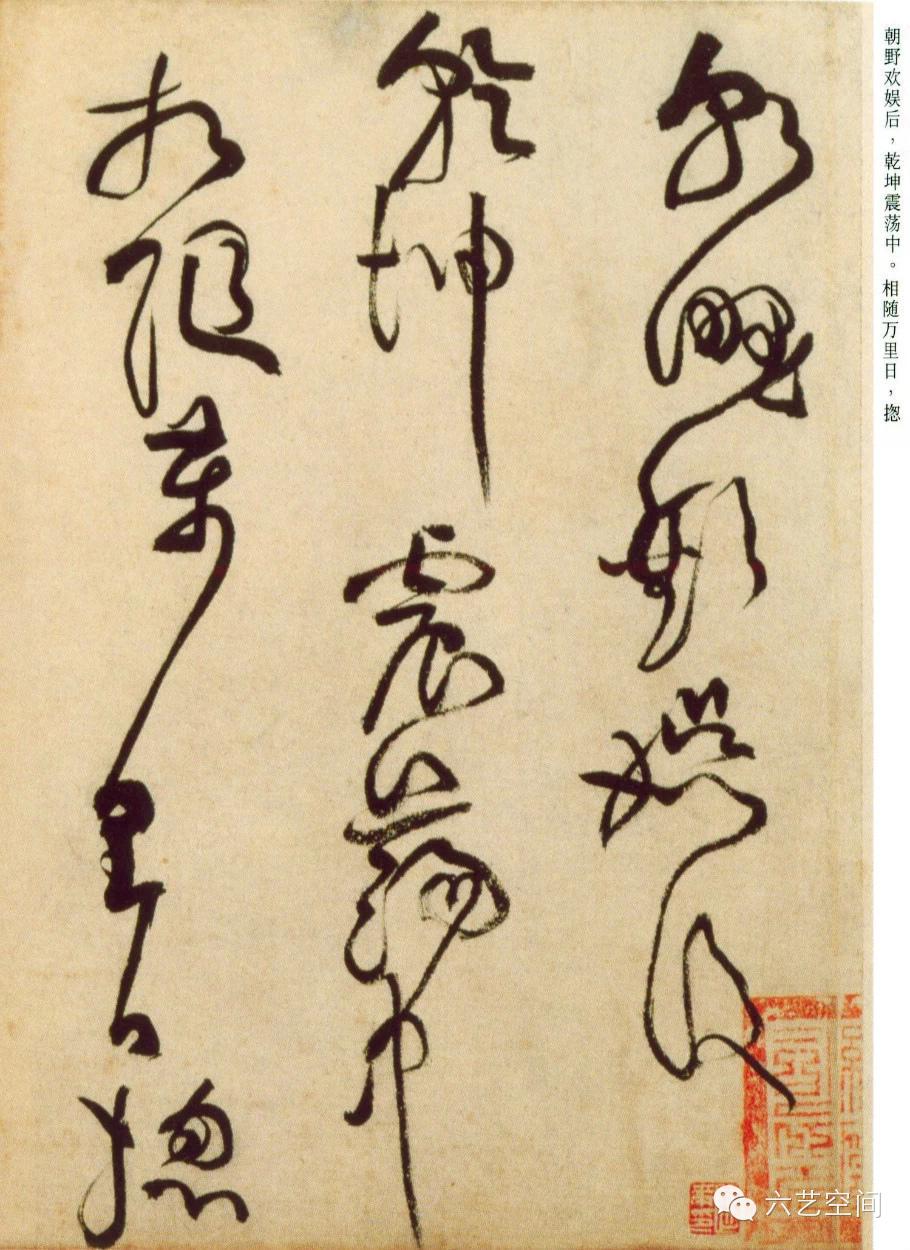 朝野欢娱后，乾坤震荡中。相随万里日，揔
朝野歡娱後
乾坤震蕩中
相随萬里日揔
六艺空间